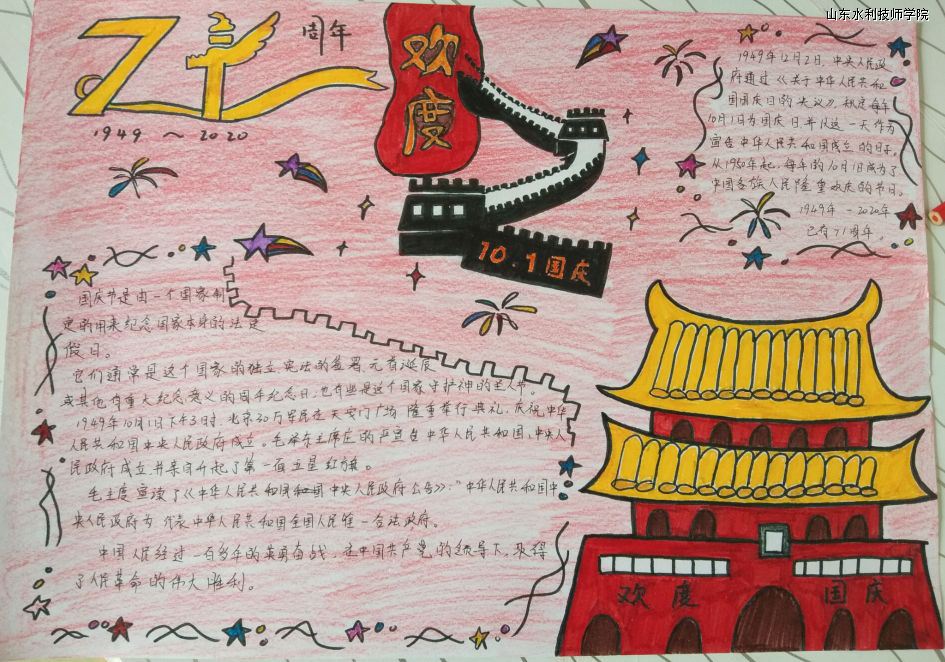 山东水利技师学院
71周年
1949 ~ 2020
欢度
10.1国庆
1949年12月2日,中央人民政
府通过《关于中华人民共和
国国庆日的决议》,规定每年
10月1日为国庆日,并以这一天作为
宣告中华人民共和国成立的日子。
从1950年起,每年的10月1日成为了
中国各族人民隆重欢庆的节日。
1949年-2020年
已有71周年。
国庆节是由一个国家制
定的用来纪念国家本身的法定
假日。
它们通常是这个国家的独立、宪法的签署、元首诞辰
或其他有重大纪念意义的周年纪念日,也有些是这个国家守护神的圣人节。
1949年10月1日下午3时,北京30万军民在天安门广场隆重举行典礼,庆祝中华
人民共和国中央人民政府成立。毛泽东主席庄的严宣告中华人民共和国、中央人
民政府成立并亲自升起了第一面五星红旗。
毛主席宣读了《中华人民共和国和国中央人民政府公告》:"中华人民共和国中
央人民政府为代表中华人民共和国全国人民唯一合法政府。
中国人民经过一百多年的英勇奋战,在中国共产党的领导下,取得
了人民革命的伟大胜利。
欢度 国庆